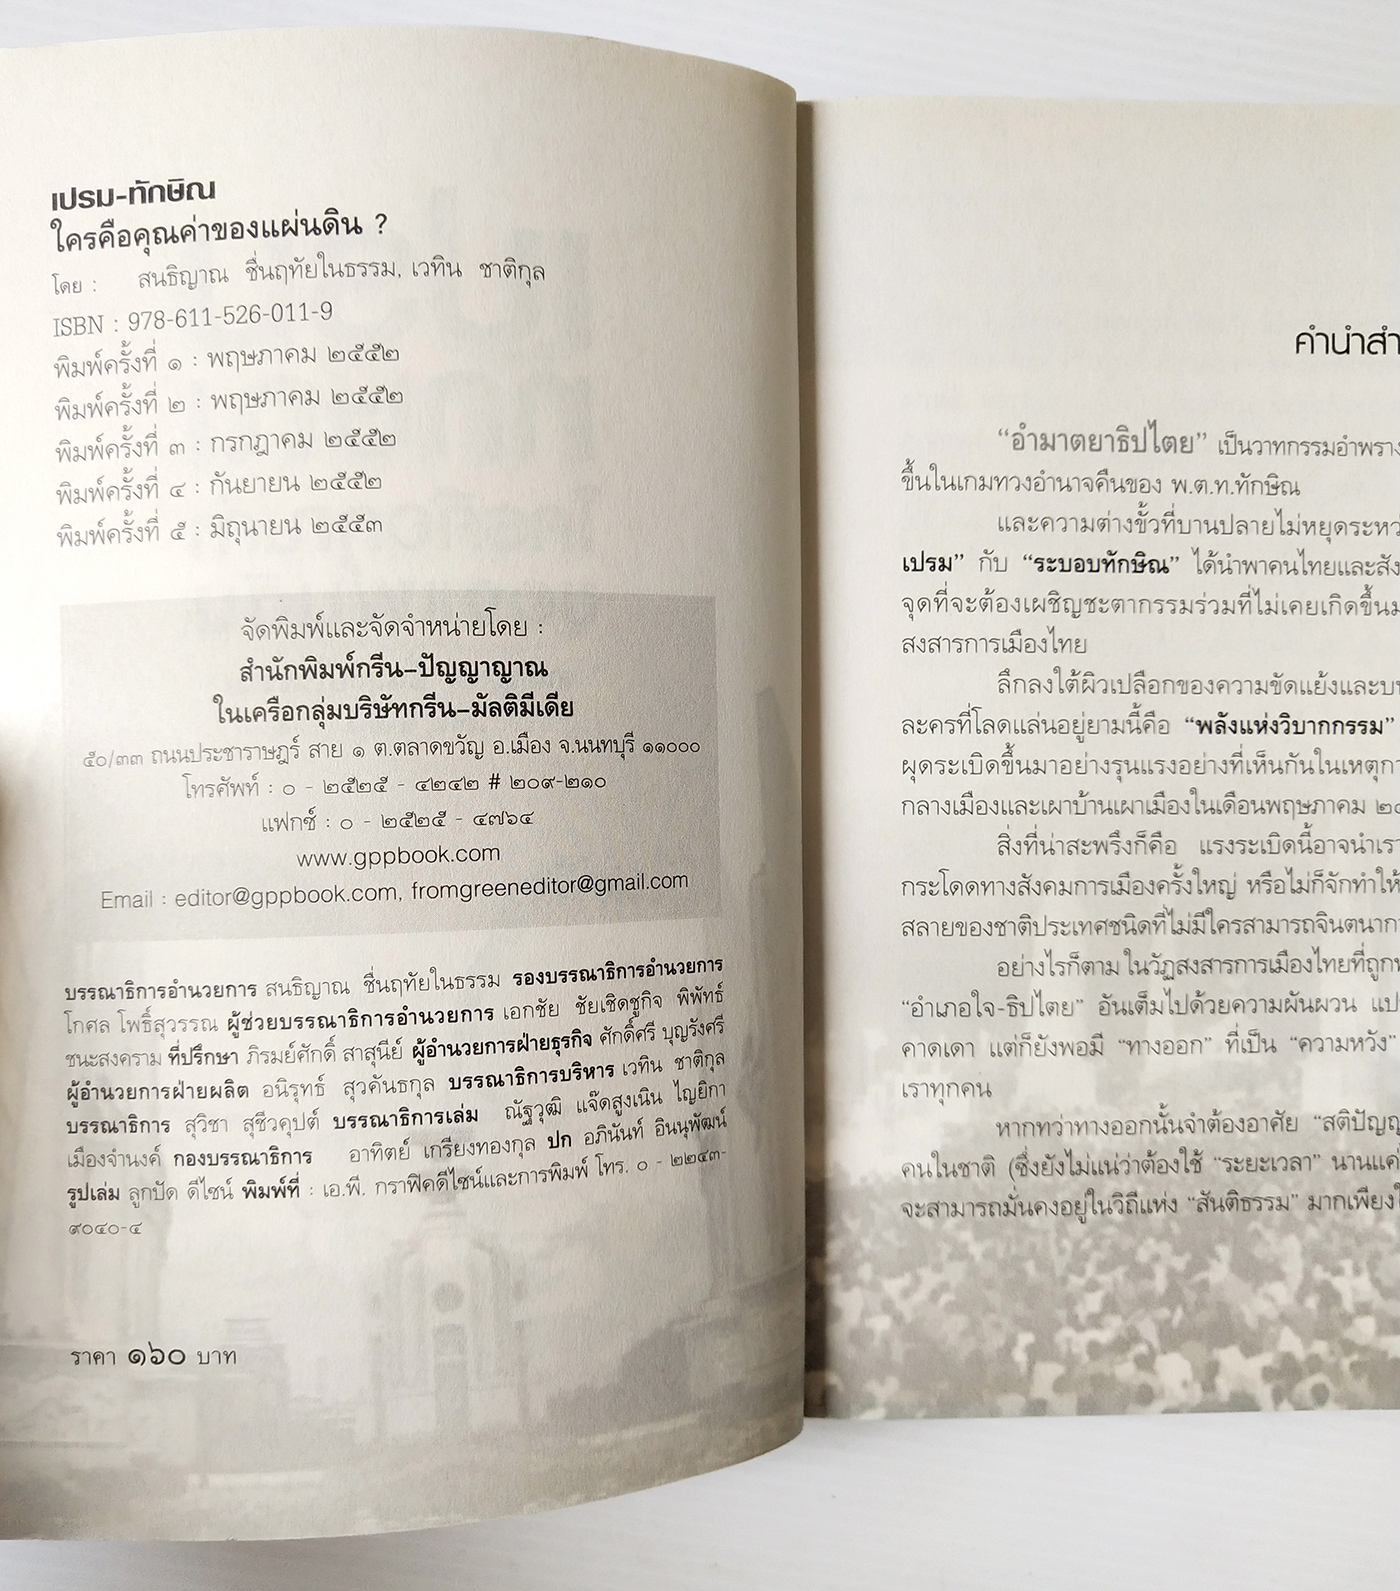 เปรม-ทักษิณ
ใครคือคุณค่าของแผ่นดิน ?
โดย : สนธิญาณ ชื่นฤทัยในธรรม, เวทิน ชาติกุล
ISBN : 978-611-526-011-9
พิมพ์ครั้งที่ ๑ : พฤษภาคม ๒๕๕๒
พิมพ์ครั้งที่ ๒ : พฤษภาคม ๒๕๕๒
พิมพ์ครั้งที่ ๓ : กรกฎาคม ๒๕๕๒
พิมพ์ครั้งที่ ๔ : กันยายน ๒๕๕๒
พิมพ์ครั้งที่ ๕ : มิถุนายน ๒๕๕๓
จัดพิมพ์และจัดจำหน่ายโดย :
สำนักพิมพ์กรีน-ปัญญาญาณ
ในเครือกลุ่มบริษัทกรีน-มัลติมีเดีย
๕๐/๓๓ ถนนประชาราษฎร์ สาย ๑ ต.ตลาดขวัญ อ.เมือง จ.นนทบุรี ๑๑๐๐๐
โทรศัพท์ : ๐ - ๒๕๒๕ - ๔๒๔๒ # ๒๐๙-๒๑๐
แฟกซ์ : ๐ - ๒๕๒๕ - ๔๗๖๔
www.gppbook.com
Email : editor@gppbook.com, fromgreeneditor@gmail.com
บรรณาธิการอำนวยการ สนธิญาณ ชื่นฤทัยในธรรม รองบรรณาธิการอำนวยการ
โกศล โพธิ์สุวรรณ ผู้ช่วยบรรณาธิการอำนวยการ เอกชัย ชัยเชิดชูกิจ พิพัทธ์
ชนะสงคราม ที่ปรึกษา ภิรมย์ศักดิ์ สาสุนีย์ ผู้อำนวยการฝ่ายธุรกิจ ศักดิ์ศรี บุญรังศรี
ผู้อำนวยการฝ่ายผลิต อนิรุทธ์ สุวคันธกุล บรรณาธิการบริหาร เวทิน ชาติกุล
บรรณาธิการ สุวิชา สุชีวคุปต์ บรรณาธิการเล่ม ณัฐวุฒิ แจ๊ดสูงเนิน ไญยิกา
เมืองจำนงค์ กองบรรณาธิการ อาทิตย์ เกรียงทองกุล ปก อภินันท์ อินนุพัฒน์
รูปเล่ม ลูกปัด ดีไซน์ พิมพ์ที่ : เอ.พี. กราฟิคดีไซน์และการพิมพ์ โทร. ๐ - ๒๒๔๓-
๙๐๔๐-๔
ราคา ๑๖๐ บาท
คำนำสำ
“อำมาตยาธิปไตย” เป็นวาทกรรมอำพราง
ขึ้นในเกมทวงอำนาจคืนของ พ.ต.ท.ทักษิณ
และความต่างขั้วที่บานปลายไม่หยุดระหว
เปรม” กับ “ระบอบทักษิณ” ได้นำพาคนไทยและสัง
จุดที่จะต้องเผชิญชะตากรรมร่วมที่ไม่เคยเกิดขึ้นม
สงสารการเมืองไทย
ลึกลงใต้ผิวเปลือกของความขัดแย้งและบท
ละครที่โลดแล่นอยู่ยามนี้คือ “พลังแห่งวิบากกรรม”
ผุดระเบิดขึ้นมาอย่างรุนแรงอย่างที่เห็นกันในเหตุกา
กลางเมืองและเผาบ้านเผาเมืองในเดือนพฤษภาคม ๒๕
สิ่งที่น่าสะพรึงก็คือ แรงระเบิดนี้อาจนำเรา
กระโดดทางสังคมการเมืองครั้งใหญ่ หรือไม่ก็จักทำให้
สลายของชาติประเทศชนิดที่ไม่มีใครสามารถจินตนากา
อย่างไรก็ตาม ในวัฏสงสารการเมืองไทยที่ถูก
“อำเภอใจ-ธิปไตย” อันเต็มไปด้วยความผันผวน แป
คาดเดา แต่ก็ยังพอมี “ทางออก” ที่เป็น “ความหวัง”
เราทุกคน
หากทว่าทางออกนั้นจำต้องอาศัย “สติปัญญ
คนในชาติ (ซึ่งยังไม่แน่ว่าต้องใช้ “ระยะเวลา” นานแค่
จะสามารถมั่นคงอยู่ในวิถีแห่ง “สันติธรรม” มากเพียงใ